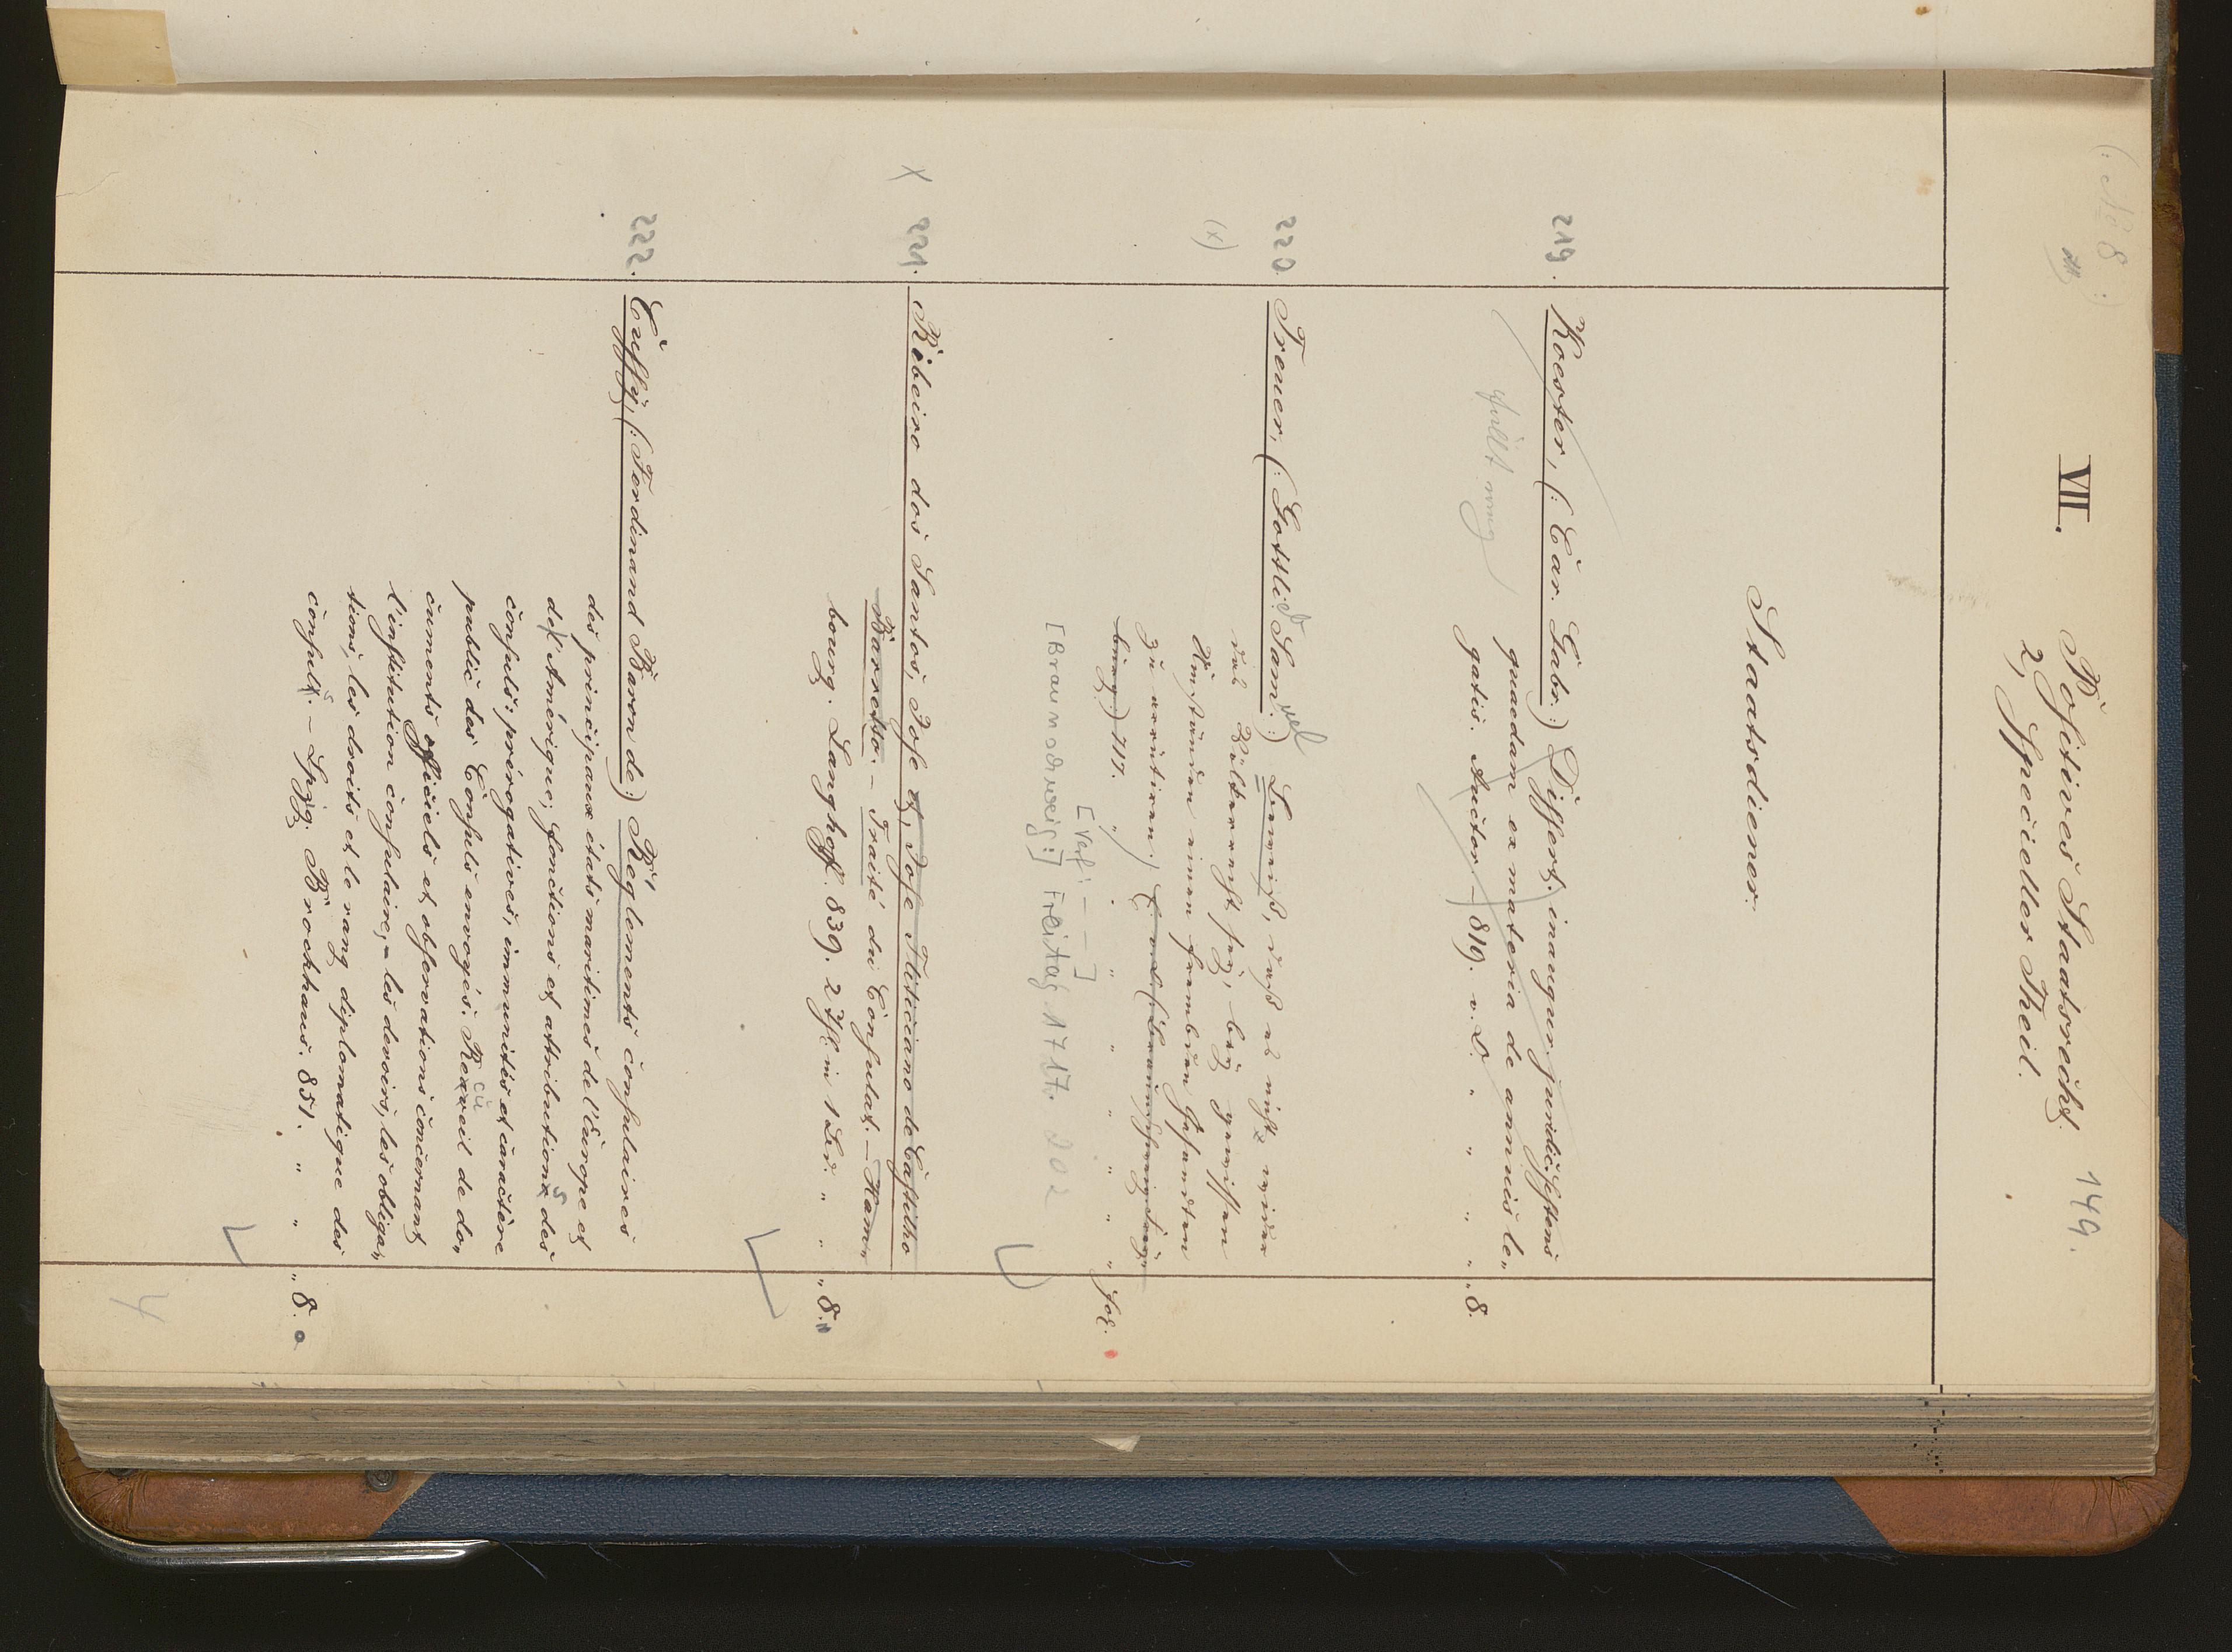 (: № 8 :)
VII. Positives Staatsrecht. 149.
2, Specieller Theil.
Staatsdiener.
219. Koester, (: Car. Gabr.:) Dissert. inaugur. juridic. sistens
quaedam ex materia de annuis le„
gatis. Auctor – 819. v. D. " " " „ 8.
fällt weg
220. Treuer, (: Gottlieb Samuel:) Beweiß, daß es nicht wider
das Völkerrecht sey, bey gewissen
(x) Umständen einen fremden Gesandten
zu arretiren.
burg:) 717. " " " " " " " fol.
[Verf. – – – ]
[Braunschweig:] Freitag 1717. 202
x 221. Ribeiro dos Santos, Jose et, Jose Fliticiano de Castilho
Barretto. – Traité du Consulat. – Ham„
bourg. Langhoff. 839. 2 Thl. in 1 Bd. " „ 8. "
222. Cussy, (: Ferdinand Baron de:) Réglements consulaires
des principaux états maritimes de l'Europe et
de l'Amérique; fonctions et attributions des
consuls; prérogatives, immunités et caractère
public des Consuls envoyés. Recueil de do„
cuments officiels et observations concernant
l'institution consulaire, – les devoirs, les obliga„
tions, les droits et le rang diplomatique des
consuls. – Lpzg. Brockhaus. 851. " " „ 8.